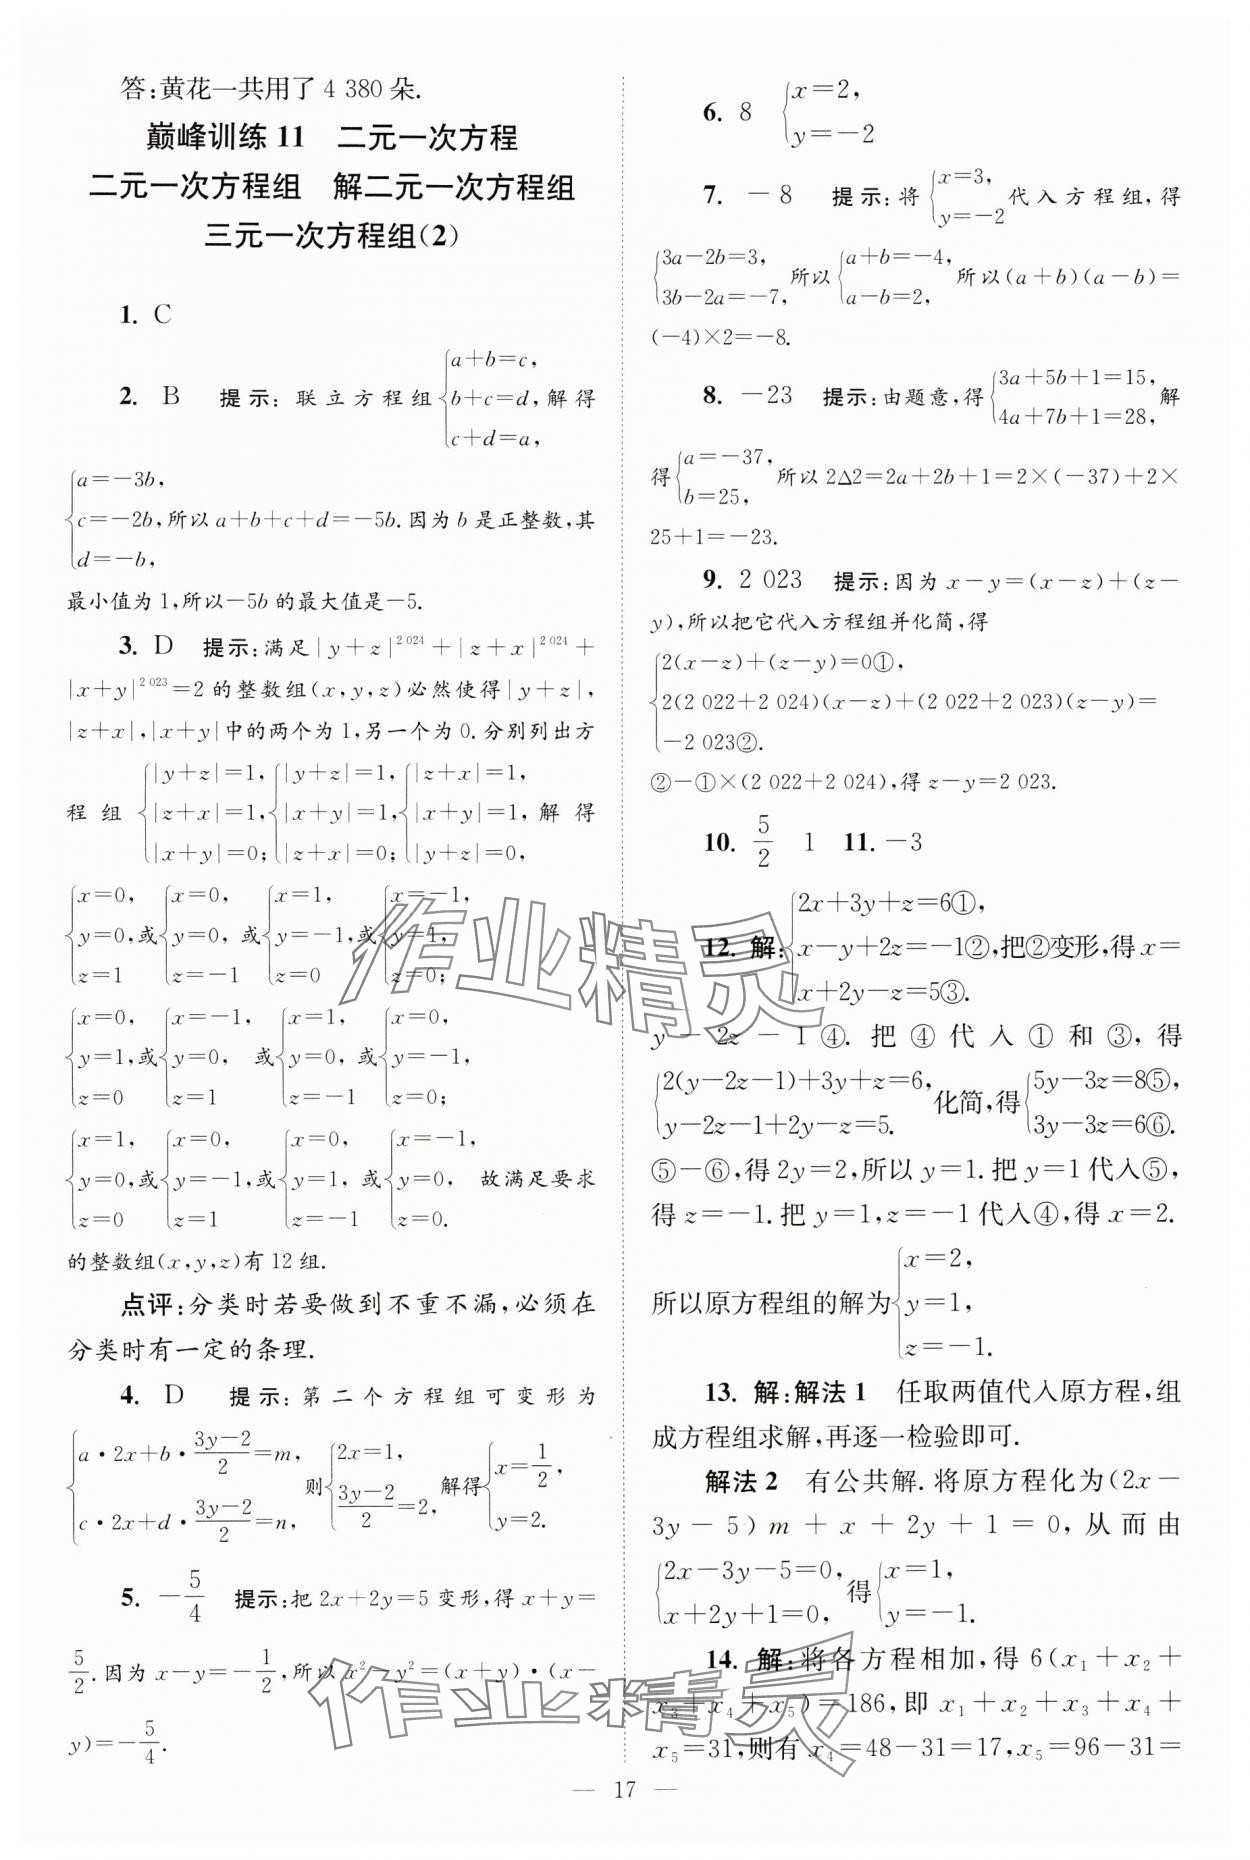 答:黄花一共用了 4 380 朵.
巅峰训练 11　二元一次方程
二元一次方程组　解二元一次方程组
三元一次方程组(2)
1. C
2. B　提示: 联立方程组{a+b=c, b+c=d, c+d=a, 解得
{a=-3b, c=-2b, d=-b, 所以 a+b+c+d=-5b.因为 b 是正整数,其
最小值为 1,所以-5b 的最大值是-5.
3. D　提示:满足|y+z|^{2 024}+|z+x|^{2 024}+
|x+y|^{2 023}=2 的整数组(x,y,z)必然使得|y+z|,
|z+x|,|x+y|中的两个为 1,另一个为 0.分别列出方
程组{|y+z|=1, |z+x|=1, |x+y|=0; {|y+z|=1, |x+y|=1, |z+x|=0; {|z+x|=1, |x+y|=1, |y+z|=0, 解得
{x=0, y=0, z=1 或{x=0, y=0, z=-1 或{x=1, y=-1, z=0 或{x=-1, y=1, z=0;
{x=0, y=1, z=0 或{x=-1, y=0, z=1 或{x=1, y=0, z=-1 或{x=0, y=-1, z=0;
{x=1, y=0, z=0 或{x=0, y=-1, z=1 或{x=0, y=1, z=-1 或{x=-1, y=0, z=0. 故满足要求
的整数组(x,y,z)有 12 组.
点评:分类时若要做到不重不漏,必须在
分类时有一定的条理.
4. D　提示: 第二个方程组可变形为
{a·2x+b·(3y-2)/2=m, c·2x+d·(3y-2)/2=n, 则{2x=1, (3y-2)/2=2, 解得{x=1/2, y=2.
5. -5/4　提示:把 2x+2y=5 变形,得 x+y=
5/2.因为 x-y=-1/2,所以 x²-y²=(x+y)·(x-
y)=-5/4.
6. 8　{x=2, y=-2
7. -8　提示:将{x=3, y=-2 代入方程组,得
{3a-2b=3, 3b-2a=-7, 所以{a+b=-4, a-b=2, 所以(a+b)(a-b)=
(-4)×2=-8.
8. -23　提示:由题意,得{3a+5b+1=15, 4a+7b+1=28, 解
得{a=-37, b=25, 所以 2△2=2a+2b+1=2×(-37)+2×
25+1=-23.
9. 2 023　提示:因为 x-y=(x-z)+(z-
y),所以把它代入方程组并化简,得
{2(x-z)+(z-y)=0①,
2(2 022+2 024)(x-z)+(2 022+2 023)(z-y)=
-2 023②.
②-①×(2 022+2 024),得 z-y=2 023.
10. 5/2　1　11. -3
12. 解:{2x+3y+z=6①, x-y+2z=-1②, x+2y-z=5③. 把②变形,得 x=
y-2z-1④.把④代入①和③,得
{2(y-2z-1)+3y+z=6, y-2z-1+2y-z=5. 化简,得{5y-3z=8⑤, 3y-3z=6⑥.
⑤-⑥,得 2y=2,所以 y=1.把 y=1 代入⑤,
得 z=-1.把 y=1,z=-1 代入④,得 x=2.
所以原方程组的解为{x=2, y=1, z=-1.
13. 解:解法 1　任取两值代入原方程,组
成方程组求解,再逐一检验即可.
解法 2　有公共解.将原方程化为(2x-
3y-5)m+x+2y+1=0,从而由
{2x-3y-5=0, x+2y+1=0, 得{x=1, y=-1.
14. 解:将各方程相加,得 6(x₁+x₂+
x₃+x₄+x₅)=186,即 x₁+x₂+x₃+x₄+
x₅=31,则有 x₄=48-31=17,x₅=96-31=
— 17 —
作业精灵
作业精灵